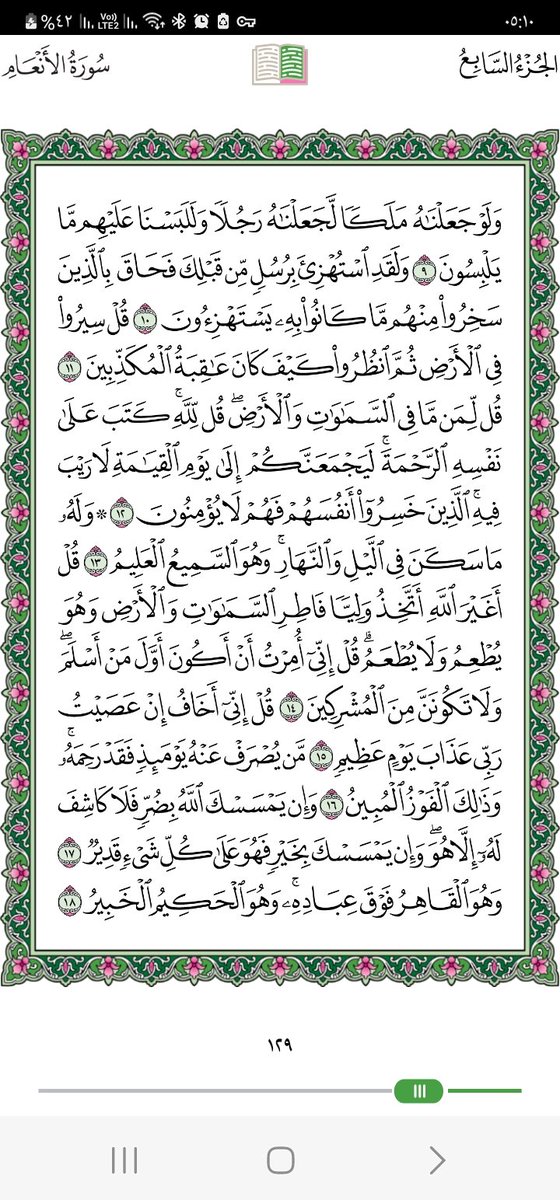 ٠٥:١٠
%٤٢
Vo)) LTE2
الجُزْءُ السَّابِعُ
سُورَةُ الأَنْعَامِ
وَلَوْ جَعَلْنَٰهُ مَلَكًا لَّجَعَلْنَٰهُ رَجُلًا وَلَلَبَسْنَا عَلَيْهِم مَّا
يَلْبِسُونَ ٩ وَلَقَدِ ٱسْتُهْزِئَ بِرُسُلٍ مِّن قَبْلِكَ فَحَاقَ بِٱلَّذِينَ
سَخِرُوا۟ مِنْهُم مَّا كَانُوا۟ بِهِۦ يَسْتَهْزِءُونَ ١٠ قُلْ سِيرُوا۟
فِى ٱلْأَرْضِ ثُمَّ ٱنظُرُوا۟ كَيْفَ كَانَ عَٰقِبَةُ ٱلْمُكَذِّبِينَ ١١
قُل لِّمَن مَّا فِى ٱلسَّمَٰوَٰتِ وَٱلْأَرْضِ ۖ قُل لِّلَّهِ ۚ كَتَبَ عَلَىٰ
نَفْسِهِ ٱلرَّحْمَةَ ۚ لَيَجْمَعَنَّكُمْ إِلَىٰ يَوْمِ ٱلْقِيَٰمَةِ لَا رَيْبَ
فِيهِ ۚ ٱلَّذِينَ خَسِرُوٓا۟ أَنفُسَهُمْ فَهُمْ لَا يُؤْمِنُونَ ١٢ ۞ وَلَهُۥ
مَا سَكَنَ فِى ٱلَّيْلِ وَٱلنَّهَارِ ۚ وَهُوَ ٱلسَّمِيعُ ٱلْعَلِيمُ ١٣ قُلْ
أَغَيْرَ ٱللَّهِ أَتَّخِذُ وَلِيًّا فَاطِرِ ٱلسَّمَٰوَٰتِ وَٱلْأَرْضِ وَهُوَ
يُطْعِمُ وَلَا يُطْعَمُ ۗ قُلْ إِنِّىٓ أُمِرْتُ أَنْ أَكُونَ أَوَّلَ مَنْ أَسْلَمَ ۖ
وَلَا تَكُونَنَّ مِنَ ٱلْمُشْرِكِينَ ١٤ قُلْ إِنِّىٓ أَخَافُ إِنْ عَصَيْتُ
رَبِّى عَذَابَ يَوْمٍ عَظِيمٍ ١٥ مَّن يُصْرَفْ عَنْهُ يَوْمَئِذٍ فَقَدْ رَحِمَهُۥ ۚ
وَذَٰلِكَ ٱلْفَوْزُ ٱلْمُبِينُ ١٦ وَإِن يَمْسَسْكَ ٱللَّهُ بِضُرٍّ فَلَا كَاشِفَ
لَهُۥٓ إِلَّا هُوَ ۖ وَإِن يَمْسَسْكَ بِخَيْرٍ فَهُوَ عَلَىٰ كُلِّ شَىْءٍ قَدِيرٌ ١٧
وَهُوَ ٱلْقَاهِرُ فَوْقَ عِبَادِهِۦ ۚ وَهُوَ ٱلْحَكِيمُ ٱلْخَبِيرُ ١٨
١٢٩